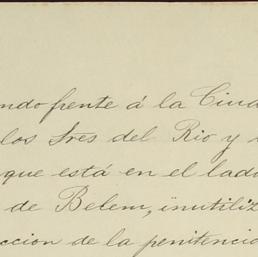 ndo frente á la Ciud
los tres del Rio y
que está en el lad
de Belem, inutiliz
ccion de la penitencia